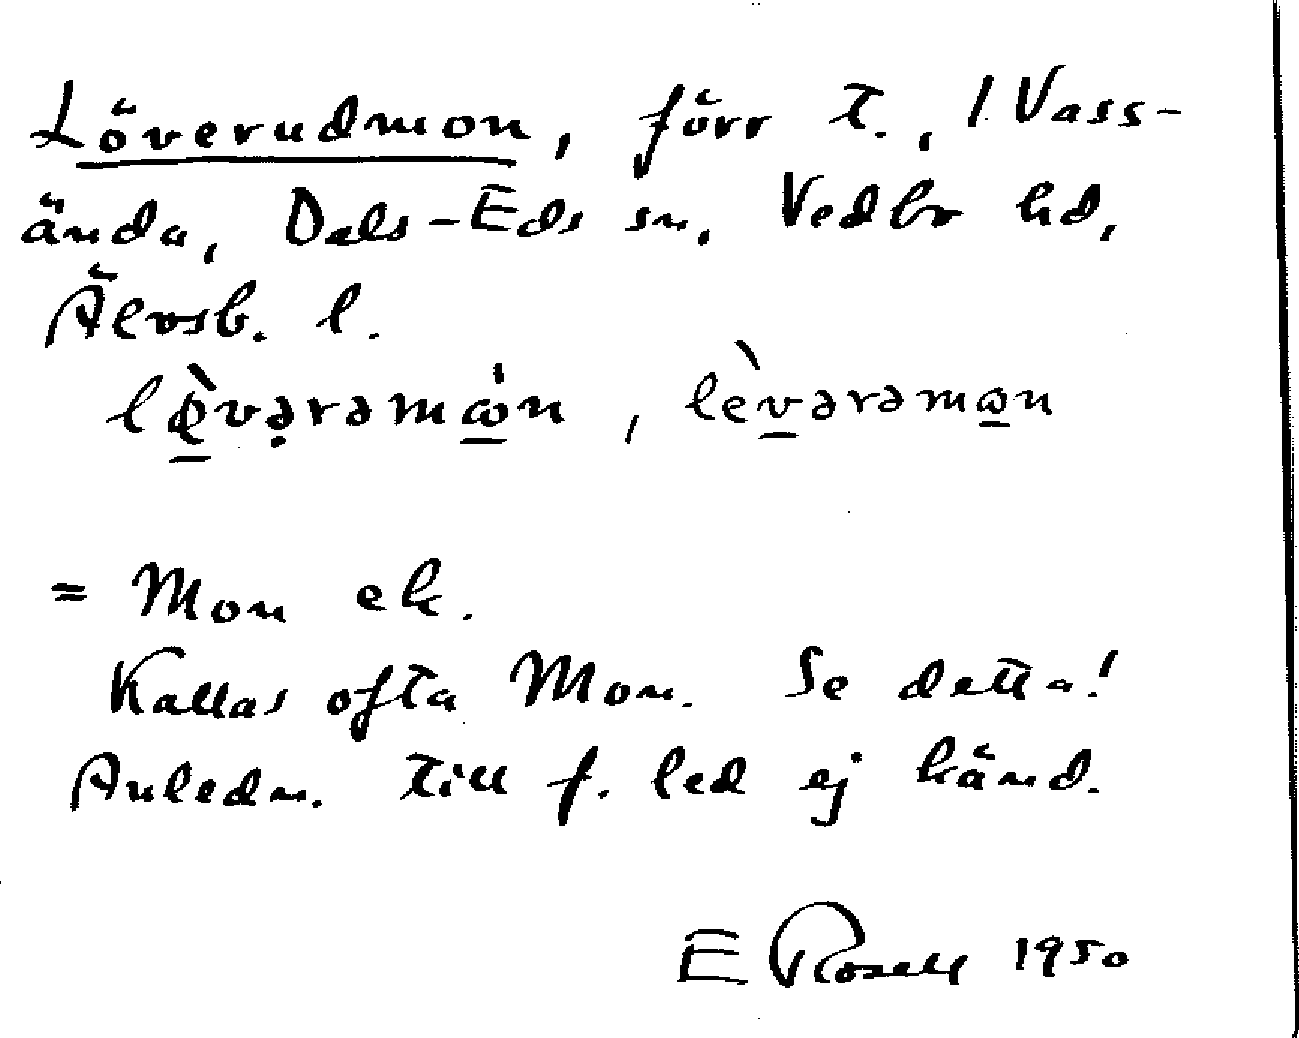 Löverudmon, förr t., 1 Vass-
ända, Dals-Eds sn, Vedbo hd,
Älvsb. l.
lè̱vərəmώn, lèv̱ərəmωn
= Mon ek.
Kallas ofta Mon. Se detta!
Anledn. till f. led ej känd.
E Rosell 1950